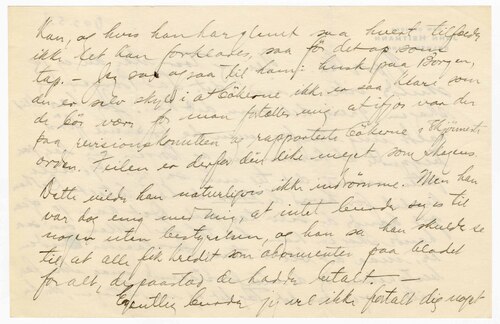 kan, og hvis han har glemt saa hvert tilfælde
ikke det kan forklares, saa for det op som
tag. – Jeg sa ogsaa til ham: husk paa Borgen,
du er selv skyld i at bøkerne ikke er saa klare som
de bør være, for man fortæller mig at ifjor var du
paa revisionskomiteen og rapporterte bøkerne i
orden. Feilen er derfor din like meget som
Dette vilde han naturligvis ikke indrømme. Men han
var dog enig med mig, at intet burde sies til
nogen uten bestyrelsen, og han sa han skulde se
til at alle fik kredit som abonnenter paa bladet
for alt, de paastod de hadde betalt. —
Egentlig burde jeg vel ikke fortalt dig noget